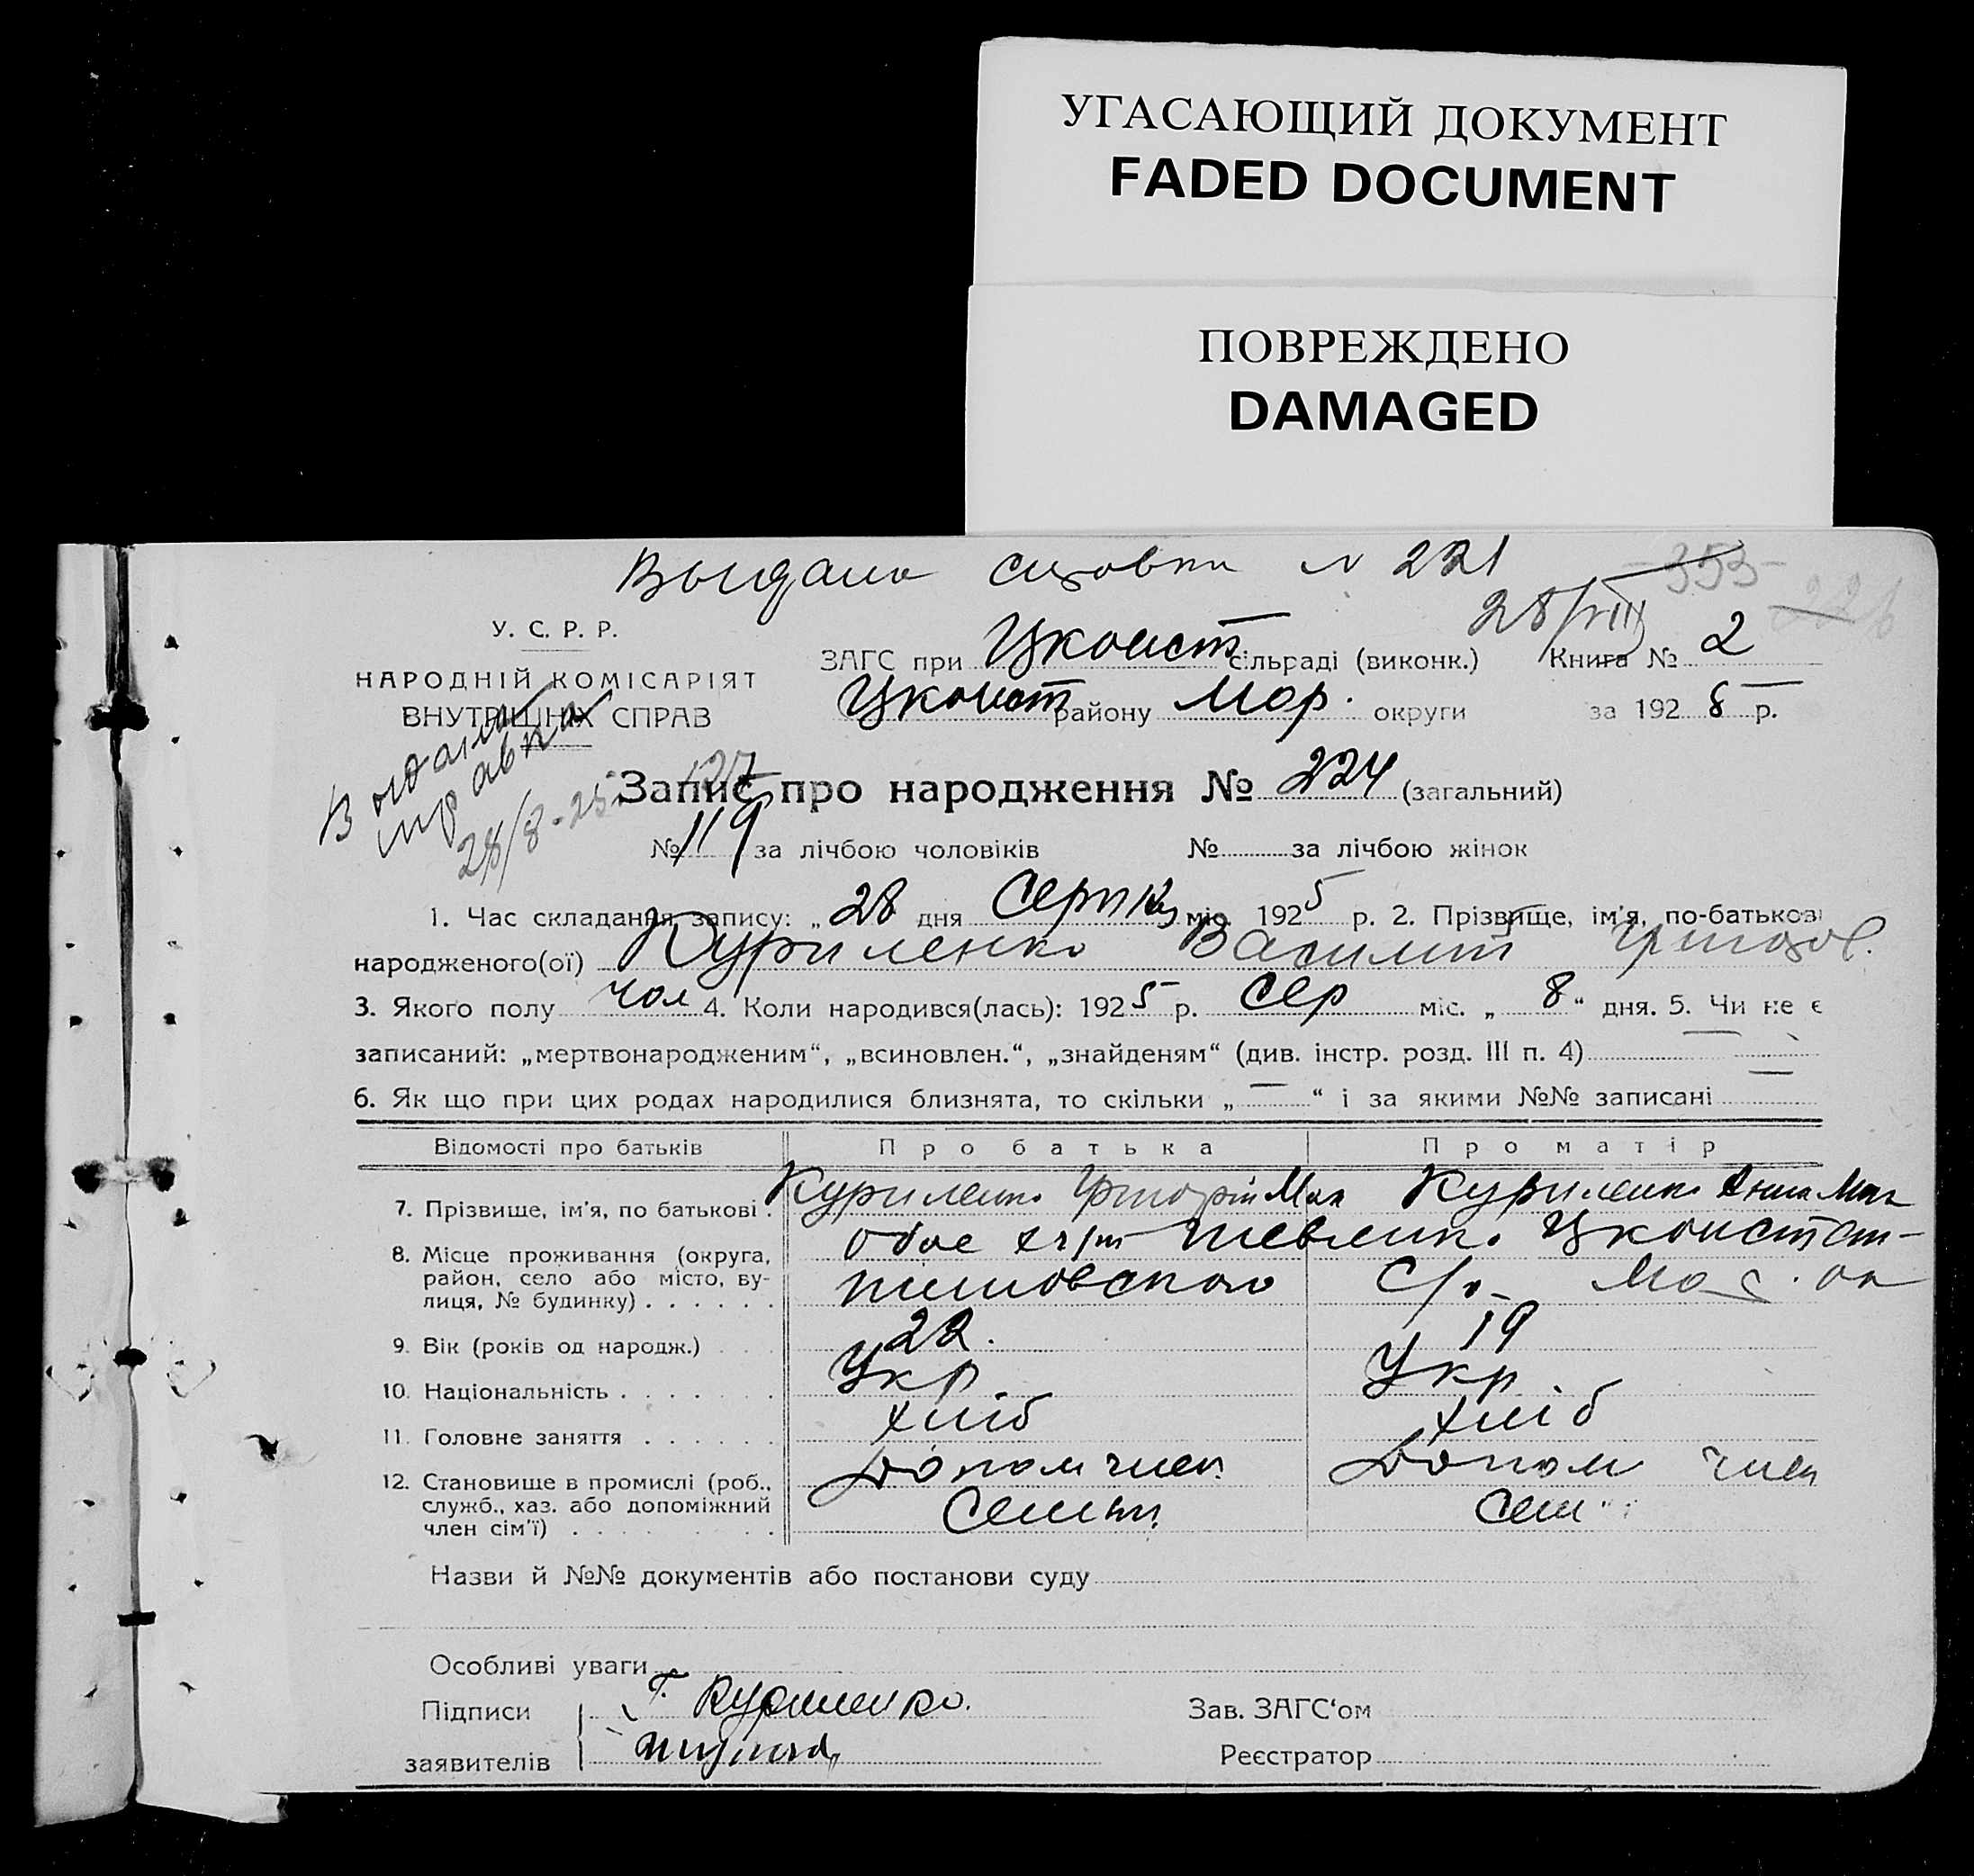 УГАСАЮЩИЙ ДОКУМЕНТ
FADED DOCUMENT
ПОВРЕЖДЕНО
DAMAGED
Выдана справка № 221
28/VIII
353
У. С. Р. Р.
НАРОДНІЙ КОМІСАРІЯТ
ВНУТРІШНІХ СПРАВ
Выдана
справка
28/8-25
ЗАГС при Цконст. сільраді (виконк.) Книга № 2
Цконст району Мар. округи за 1925 р.
Запис про народження № 224 (загальний)
№ 119 за лічбою чоловіків № за лічбою жінок
1. Час складання запису: „28 дня Серпня міс. 1925 р. 2. Прізвище, ім'я, по-батькові
народженого(ої) Куриленко Василий Григор.
3. Якого полу чол 4. Коли народився(лась): 1925 р. Сер міс. „8“ дня. 5. Чи не є
записаний: „мертвонародженим“, „всиновлен.“, „знайденям“ (див. інстр. розд. III п. 4)
6. Як що при цих родах народилися близнята, то скільки „—“ і за якими №№ записані —
Відомості про батьків Про батька Про матір
7. Прізвище, ім'я, по батькові. Куриленко Григорій Мак Куриленко Анна Мак
8. Місце проживання (округа, район, село або місто, вулиця, № будинку) обое хут Шевченко Цконстан-
тиновского С/р Мар. ок
9. Вік (років од народж.) 22. 19
10. Національність Укр. Укр.
11. Головне заняття хліб хліб
12. Становище в промислі (роб., служб., хаз. або допоміжний член сім'ї) Допом член Допом член
Семьи Сем
Назви й №№ документів або постанови суду
Особливі уваги
Підписи Г. Куриленко. Зав. ЗАГС'ом
заявителів Реєстратор